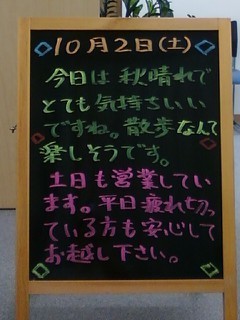 10月2日(土)
今日は秋晴れで
とても気持ちいい
ですね。散歩なんて
楽しそうです。
土日も営業してい
ます。平日疲れ切っ
ている方も安心して
お越し下さい。